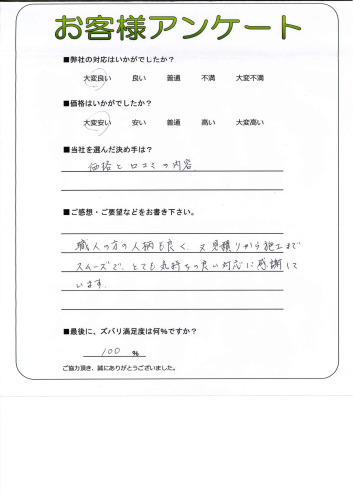 お客様アンケート
■弊社の対応はいかがでしたか？
大変良い 良い 普通 不満 大変不満
■価格はいかがでしたか？
大変安い 安い 普通 高い 大変高い
■当社を選んだ決め手は？
価格と口コミの内容
■ご感想・ご要望などをお書き下さい。
職人の方の人柄も良く、又見積りから施工まで
スムーズで、とても気持ちの良い対応に感謝して
います。
■最後に、ズバリ満足度は何％ですか？
100 ％
ご協力頂き、誠にありがとうございました。